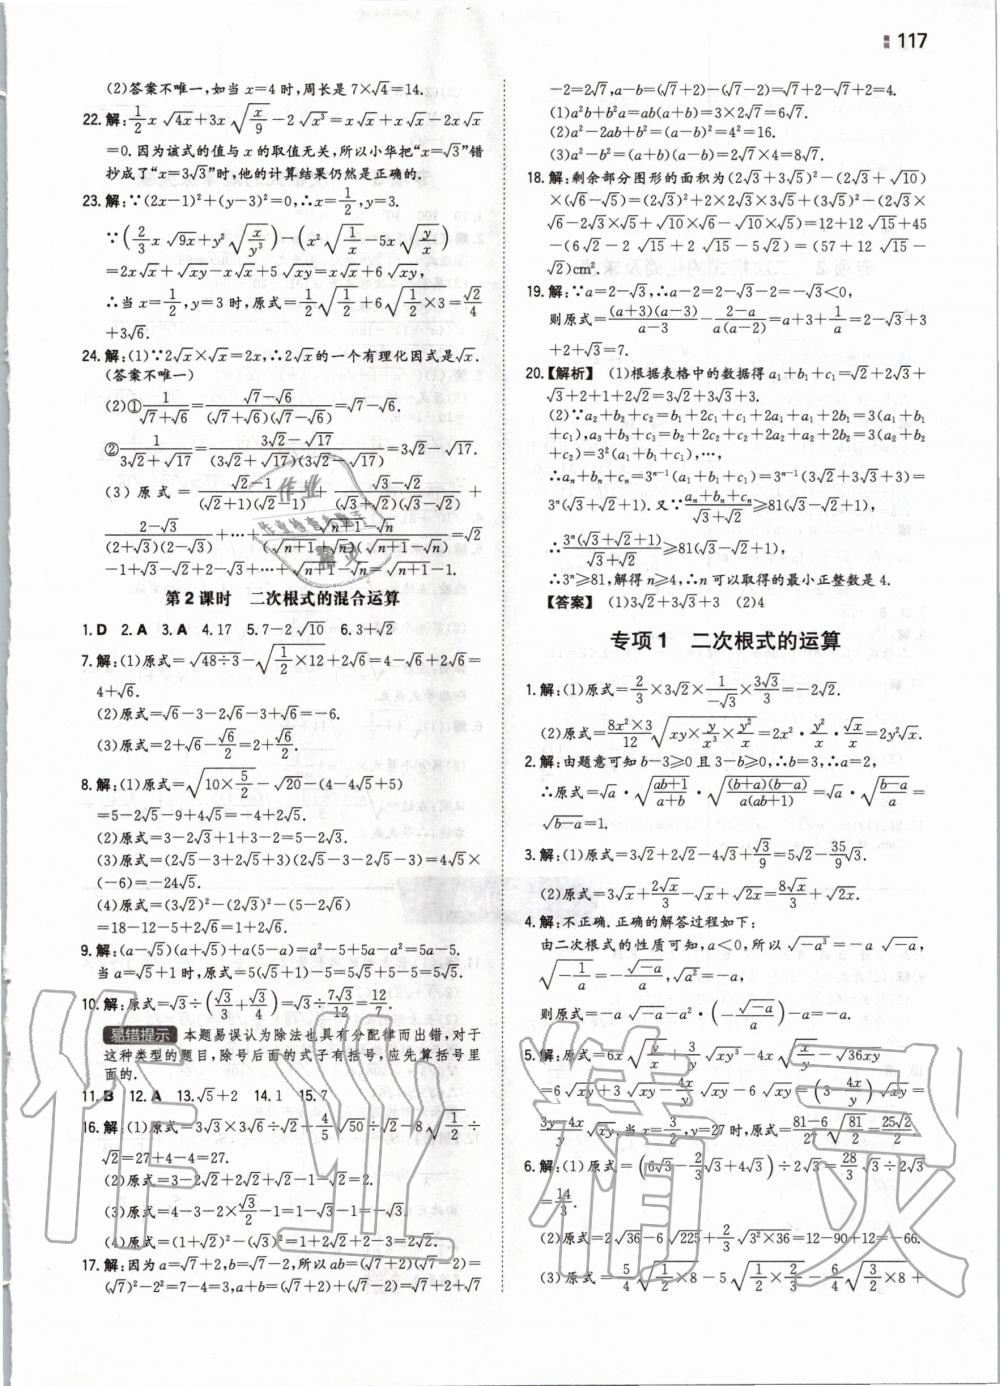 117
(2)答案不唯一,如当x=4时,周长是7×√4=14.
22.解:1/2 x √(4x)+3x √(x/9)-2 √(x³)=x√x+x√x-2x√x
=0.因为该式的值与x的取值无关,所以小华把“x=√3”错
抄成了“x=3√3”时,他的计算结果仍然是正确的.
23.解:∵(2x-1)²+(y-3)²=0,∴x=1/2,y=3.
∵(2/3 x √(9x)+y² √(x/y³))-(x² √(1/x)-5x √(y/x))
=2x√x+√(xy)-x√x+5√(xy)=x√x+6√(xy),
∴当x=1/2,y=3时,原式=1/2 √(1/2)+6√(1/2×3)=√2/4
+3√6.
24.解:(1)∵2√x×√x=2x,∴2√x的一个有理化因式是√x.
(答案不唯一)
(2)①1/(√7+√6)=(√7-√6)/((√7+√6)(√7-√6))=√7-√6.
②1/(3√2+√17)=(3√2-√17)/((3√2+√17)(3√2-√17))=3√2-√17.
(3)原式=(√2-1)/((√2+1)(√2-1))+(√3-√2)/((√3+√2)(√3-√2))+
(2-√3)/((2+√3)(2-√3))+…+(√(n+1)-√n)/((√(n+1)+√n)(√(n+1)-√n))=√2
-1+√3-√2+2-√3+…+√(n+1)-√n=√(n+1)-1.
第2课时 二次根式的混合运算
1.D 2.A 3.A 4.17 5.7-2√10 6.3+√2
7.解:(1)原式=√(48÷3)-√(1/2×12)+2√6=4-√6+2√6=
4+√6.
(2)原式=√6-3-2√6-3+√6=-6.
(3)原式=2+√6-√6/2=2+√6/2.
8.解:(1)原式=√(10×5/2)-√20-(4-4√5+5)
=5-2√5-9+4√5=-4+2√5.
(2)原式=3-2√3+1+3-2=5-2√3.
(3)原式=(2√5-3+2√5+3)(2√5-3-2√5-3)=4√5×
(-6)=-24√5.
(4)原式=(3√2)²-(2√3)²-(5-2√6)
=18-12-5+2√6=1+2√6.
9.解:(a-√5)(a+√5)+a(5-a)=a²-5+5a-a²=5a-5.
当a=√5+1时,原式=5(√5+1)-5=5√5+5-5=5√5.
10.解:原式=√3÷(√3/3+√3/4)=√3÷7√3/12=12/7.
易错提示 本题易误认为除法也具有分配律而出错,对于
这种类型的题目,除号后面的式子有括号,应先算括号里
面的.
11.B 12.A 13.√5+2 14.1 15.7
16.解:(1)原式=3√3×3√6÷√2+4/5 √50÷√2-8√(1/2)÷
√2=27+4-4=27.
(2)原式=3-2√2+√2+√2-1-√2=2-√2.
(3)原式=4-3-2×√3/2-1=1-√3-1=-√3.
(4)原式=(1+√2)²-(√3)²=1+2√2+2-3=2√2.
17.解:因为a=√7+2,b=√7-2,所以ab=(√7+2)(√7-2)=
(√7)²-2²=7-4=3,a+b=(√7+2)+(√7-2)=√7+2+√7
-2=2√7,a-b=(√7+2)-(√7-2)=√7+2-√7+2=4.
(1)a²b+b²a=ab(a+b)=3×2√7=6√7.
(2)a²-2ab+b²=(a-b)²=4²=16.
(3)a²-b²=(a+b)(a-b)=2√7×4=8√7.
18.解:剩余部分图形的面积为(2√3+3√5)²-(2√3+√10)
×(√6-√5)=(2√3)²+2×2√3×3√5+(3√5)²-(2√3×
√6-2√3×√5+√10×√6-√10×√5)=12+12√15+45
-(6√2-2√15+2√15-5√2)=(57+12√15-
√2)cm².
19.解:∵a=2-√3,∴a-2=2-√3-2=-√3<0,
则原式=(a+3)(a-3)/(a-3)-(2-a)/(a(a-2))=a+3+1/a=2-√3+3
+2+√3=7.
20.【解析】 (1)根据表格中的数据得a₁+b₁+c₁=√2+2√3+
√3+2+1+2√2=3√2+3√3+3.
(2)∵a₂+b₂+c₂=b₁+2c₁+c₁+2a₁+a₁+2b₁=3(a₁+b₁
+c₁),a₃+b₃+c₃=b₂+2c₂+c₂+2a₂+a₂+2b₂=3(a₂+b₂
+c₂)=3²(a₁+b₁+c₁),…,
∴aₙ+bₙ+cₙ=3ⁿ⁻¹(a₁+b₁+c₁)=3ⁿ⁻¹(3√2+3√3+3)=
3ⁿ(√3+√2+1).又∵(aₙ+bₙ+cₙ)/(√3+√2)≥81(√3-√2+1),
∴3ⁿ(√3+√2+1)/(√3+√2)≥81(√3-√2+1),
∴3ⁿ≥81,解得n≥4,∴n可以取得的最小正整数是4.
【答案】 (1)3√2+3√3+3 (2)4
专项1 二次根式的运算
1.解:(1)原式=2/3×3√2×1/(-√3)×3√3/3=-2√2.
(2)原式=(8x²×3)/12 √(xy×y/x³×y/x²)=2x²·y/x²·√x/x=2y²√x.
2.解:由题意可知b-3≥0且3-b≥0,∴b=3,∴a=2,
∴原式=√a·√((ab+1)/(a+b))·√((b+a)(b-a)/(a(ab+1)))=√a·√((b-a)/a)=
√(b-a)=1.
3.解:(1)原式=3√2+2√2-4√3+√3/9=5√2-35/9 √3.
(2)原式=3√x+2√x/3-√x+√(2x)=8√x/3+√(2x).
4.解:不正确.正确的解答过程如下:
由二次根式的性质可知,a<0,所以√(-a³)=-a√(-a),
√(-1/a)=-√(-a)/a,√(a²)=-a,
则原式=-a√(-a)-a²·(-√(-a)/a)-a=-a.
5.解:原式=6x√(y/x)+3/y √(xy³)-4x√(x/y)-√(36xy)
=6√(xy)+3√(xy)-4x/y √(xy)-6√(xy)=(3-4x/y)√(xy)=
(3y-4x)/y √(xy),当x=3/2,y=27时,原式=(81-6)/27 √(81/2)=25√2/2.
6.解:(1)原式=(6√3-2/3 √3+4√3)÷2√3=28/3 √3÷2√3
=14/3.
(2)原式=2√36-6√225+2/3 √(3²×36)=12-90+12=-66.
(3)原式=5/4 √(1/2×8)-5√(1/2×2/3)-6/4 √(3/2×8)+